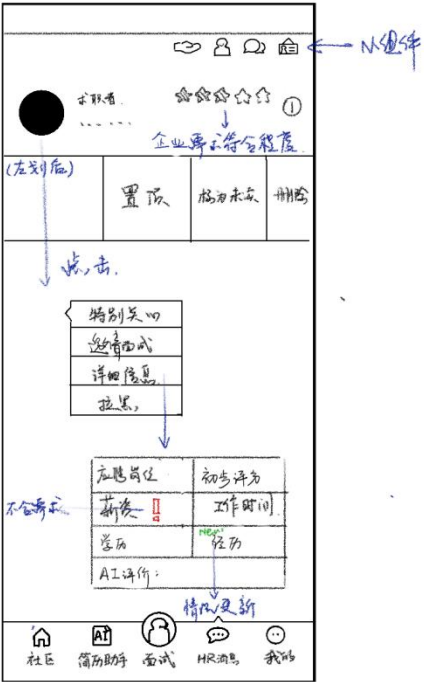 小组件
求职者
......
①
企业要求符合程度
(左划后)
置顶
标为未读
删除
点击.
特别关心
邀请面试
详细信息
拉黑,
应聘岗位
初步评分
不合要求
薪资!
工作时间
学历
New!
经历
AI评价:
情况更新
AI
社区
简历助手
面试
HR消息
我的